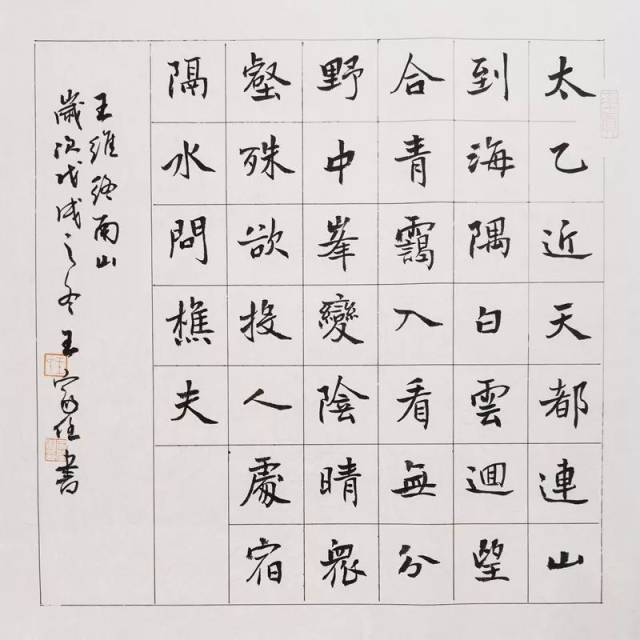 太乙近天都連山
到海隅白雲迴望
合青靄入看無分
野中峯變陰晴眾
壑殊欲投人處宿
隔水問樵夫
王維終南山
歲次戊戌之冬王富任書